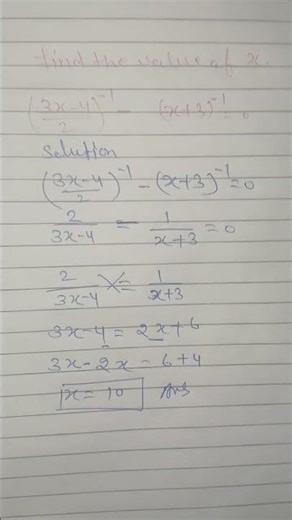 Find the value of x.
(3x-4/2)⁻¹ - (x+3)⁻¹=0
Solution
(3x-4/2)⁻¹ - (x+3)⁻¹=0
2/3x-4 = 1/x+3 =0
2/3x-4 = 1/x+3
3x-4 = 2x+6
3x-2x = 6+4
x= 10 Ans